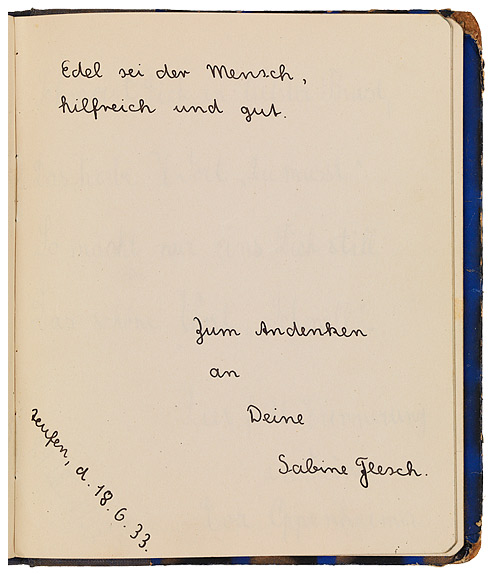 Edel sei der Mensch,
hilfreich und gut.
Zum Andenken
an
Deine
Sabine Flesch.
Teufen, d. 18.6.33.